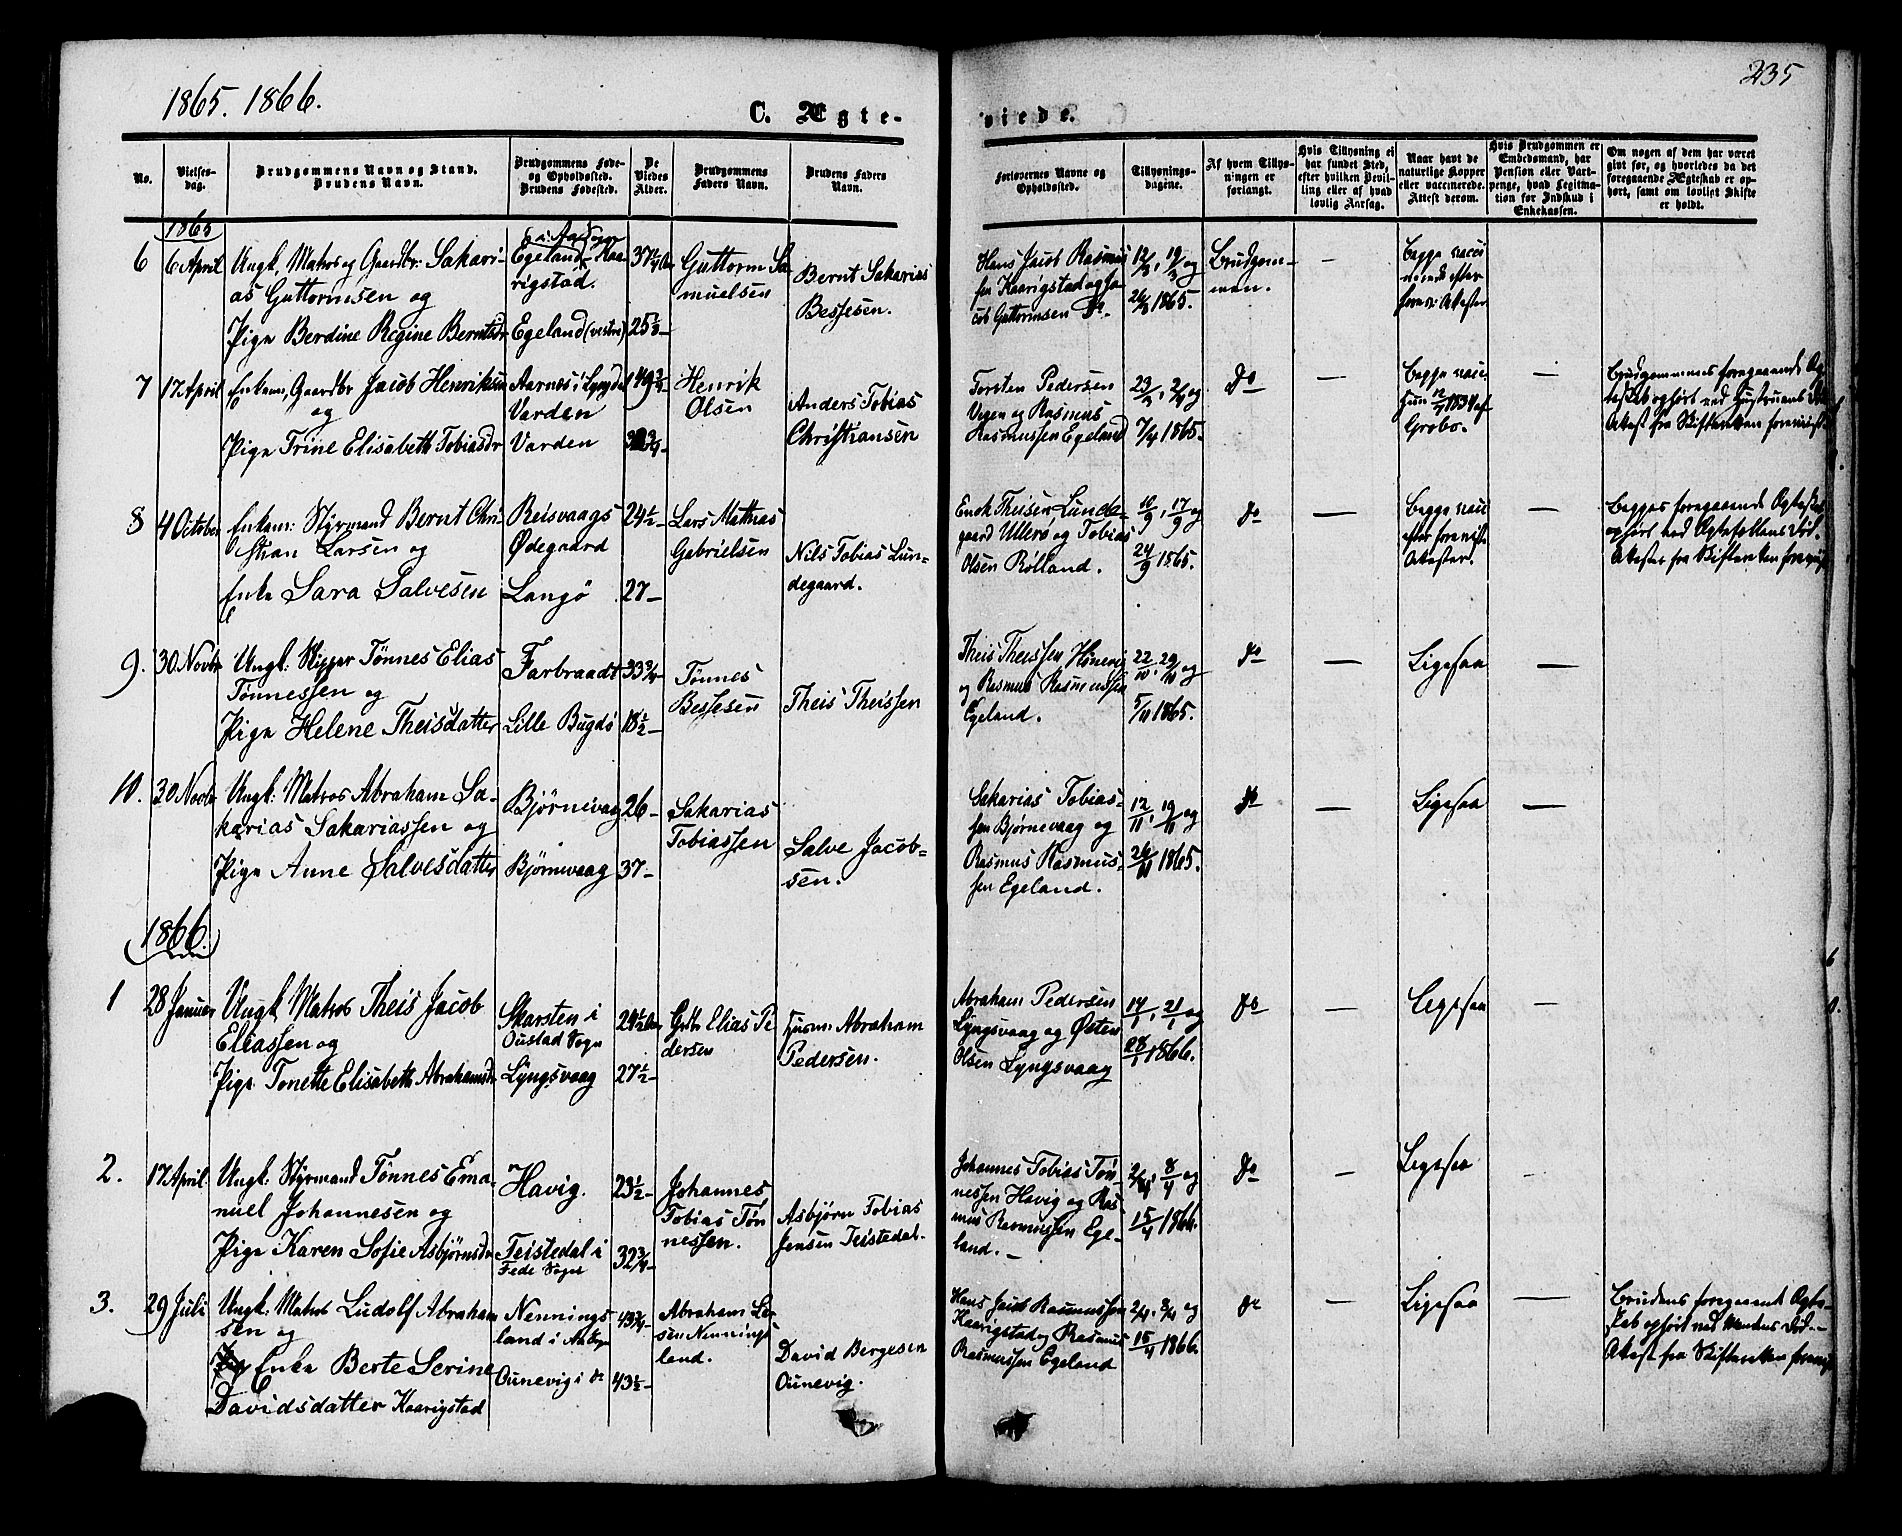 1865. 1866.
235
C. Ægte-
viede.
No.
Vielses-
dag.
Brudgommens Navn og Stand.
Brudens Navn.
Brudgommens Føde-
og Opholdssted.
Brudens Fødested.
De
Viedes
Alder.
Brudgommens
Faders Navn.
Brudens Faders
Navn.
Forlovernes Navne og
Opholdssted.
Tillysnings-
dagene.
Af hvem Tillys-
ningen er
forlangt.
Hvis Tillysning ei
har fundet Sted,
efter hvilken Bevil-
ling eller af hvad
lovlig Aarsag.
Naar havt de
naturlige Kopper
eller vaccinerede.
Attest derom.
Hvis Brudgommen er
Embedsmand, har
Pension eller Vart-
penge, hvad Legitima-
tion for Indskud i
Enkekassen.
Om nogen af dem har været
gift før, og hvorledes da det
foregaaende Ægteskab er op-
hørt, samt om lovligt Skifte
er holdt.
1865
6
6 April
Ungk. Matros og Gaardbr: Sakari-
as Guttormsen og
Pige Berdine Regine Berntsdr
Egeland Kaa-
rigstad.
Egeland (vestre)
37 1/4 Aar
25 1/3 –
Guttorm Sa
muelsen
Bernt Sakarias
Bessesen.
Hans Jacob Rasmus
sen Kaarigstad og Ja
cob Guttormsen Do.
12/3, 19/3 og
26/3 1865.
Brudgom-
men.
–
Begge vacci
nerede efter
forevi: Atester
7
17 April
Enkem, Gaardbr Jacob Henriksen
og
Pige Trine Elisabeth Tobiasdr
Aarnes i Lyngdal
Varden
Varden
49 3/4 –
Henrik
Olsen
Anders Tobias
Christiansen
Torsten Pedersen
Vegen og Rasmus
Rasmussen Egeland
7/4 1865.
Do
–
Begge vacci.
1834 af
Grobo.
–
Brudgommens foregaaende Æg
teskab ophørt ved Hustruens Død
Atest fra Skifteretten forevist.
8
4 October
Enkem: Styrmand Bernt Chri-
stian Larsen og
Enke Sara Salvesen
Reisvaags
Ødegaard
Langø
24 1/2 –
27 –
Lars Mathias
Gabrielsen
Nils Tobias Lun-
degaard.
Enok Theisen Lunde-
gaard Ullerø og Tobias
Olsen Rølland.
10/9, 17/9 og
24/9 1865.
Do
–
Begge vacci
efter foreviste
Atester.
–
Begges foregaaende Ægteskab
ophørt ved Ægtefællens Død.
Atester fra Skifteretten forevist
9.
30 Novbr
Ungk: Skipper Tønnes Elias
Tønnessen og
Pige Helene Theisdatter
Farbraadt
Lille Bugdø
33 3/4 –
18 1/2 –
Tønnes
Bessesen
Theis Theissen
Theis Theissen Hønevig
og Rasmus Rasmussen
Egeland.
22/10, 29/10 og
5/11 1865.
Do
–
Ligesaa
–
10.
30 Novbr
Ungk: Matros Abraham Sa-
karias Sakariassen og
Pige Anne Salvesdatter
Bjørnevaag
Bjørnevaag
26 –
37 –
Sakarias
Tobiassen
Salve Jacob-
sen.
Sakarias Tobias-
sen Bjørnevaag og
Rasmus Rasmus-
sen Egeland.
12/11, 19/11 og
26/11 1865.
Do
–
Ligesaa
–
1866.
1
28 Januar
Ungk. Matros Theis Jacob
Eliassen og
Pige Tonette Elisabeth Abrahamsdr
Skarsten i
Oustad Sogn
Lyngsvaag
24 1/2 Aar
27 1/2 –
Gbr. Elias Pe
dersen
Husm: Abraham
Pedersen.
Abraham Pedersen
Lyngsvaag og Østen
Olsen Lyngsvaag
14/1, 21/1 og
28/1 1866.
Do
–
Ligesaa
–
2.
17 April
Ungk. Styrmand Tønnes Ema-
nuel Johannesen og
Pige Karen Sofie Asbjørnsdr
Havig.
Teistedal i
Fede Sogn
23 1/2 –
32 3/4 –
Johannes
Tobias Tøn
nessen.
Asbjørn Tobias
Jensen Teistedal.
Johannes Tobias Tøn
nessen Havig og Ras
mus Rasmussen Ege-
land. –
2/4, 8/4 og
15/4 1866.
Do
–
Ligesaa
–
3.
29 Juli
Ungk. Matros Ludolf Abraham
sen og
Enke Berte Serine
Davidsdatter Kaarigstad
Nennings
land i Aa Sogn
Ounevig i Do
43 3/4 –
43 1/2 –
Abraham Le-
sen Nennings
land.
David Bergesen
Ounevig.
Hans Jacob Rasmussen
Kaarigstad og Rasmus
Rasmussen Egeland
2/4, 8/4 og
15/4 1866.
Do
–
Ligesaa
–
Brudens foregaaende Ægte-
skab ophørt ved Mandens Død. –
Atest fra Skifteretten forevist